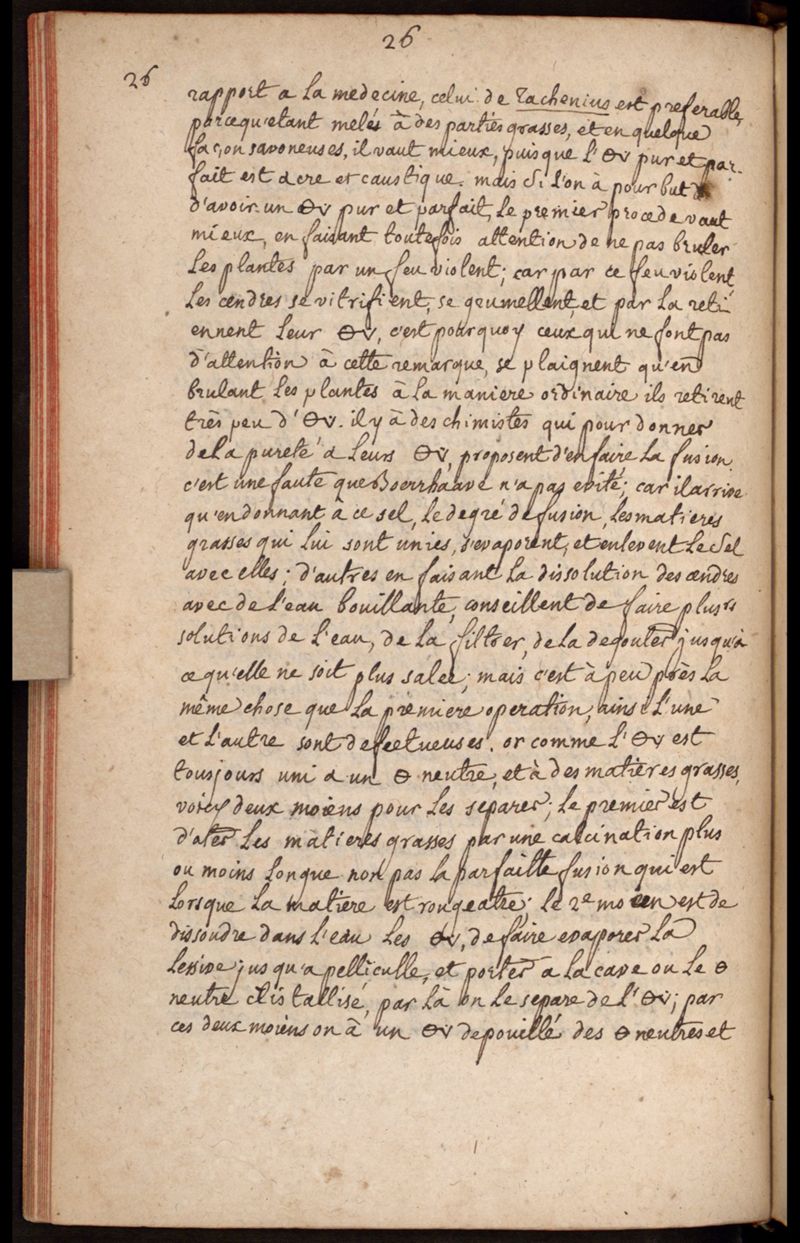 26
26
rapport a La medecine, celui de Tachenius est preferable,
parcequ'etant melés à des parties grasses, et en quelque
façon savoneuses, il vaut mieux, puisque L'🜔v pur et par-
fait est acre et caustique. mais si L'on à pour but
d'avoir un 🜔v pur et parfait, Le premier procede vaut
mieux, en faisant toutefois attention de ne pas bruler
Les plantes par un feu violent; car par ce feu violent
Les cendres se vitrifient, se grumellent, et par La reti
ennent Leur 🜔v, c'est pourquoy ceux qui ne font pas
d'attention à cette remarque, se plaignent qu'en
brulant Les plantes à La maniere ordinaire ils retirent
très peu d'🜔v. il y à des chimistes qui pour donner
de La pureté a Leurs 🜔v, proposent d'en faire La fusion
c'est une faute que Boerrhaave n'a pas evité; car il arrive
qu'en donnant à ce sel, Le degré de fusion, Les matieres
grasses qui Lui sont unies, s'evaporent, et enlevent Le sel
avec elles; d'autres en faisant La dissolution des cendres
avec de L'eau bouillante, conseillent de faire plusrs
solutions de L'eau, de La filtrer, de La degouter jusqu'à
ce qu'elle ne soit plus salée; mais c'est à peu près La
même chose que La premiere operation, ainsi L'une
et L'autre sont defectueuses. or comme L'🜔v est
tousjours uni a un 🜔 neutre, et à des matières grasses,
voicy deux moiens pour Les separer; Le premier est
d'oter Les matieres grasses par une calcination plus
ou moins Longue non pas La parfaitte fusion qui est
Lorsque La matiere est rougeatre; Le 2e moien est de
dissoudre dans L'eau Les 🜔v, de faire evaporer La
Lessive jusqu'a pelliculle, et porter a La cave ou Le 🜔
neutre cristallisé, par Là on Le separe de L'🜔v; par
ces deux moiens on à un 🜔v depouillé des 🜔 neutres et